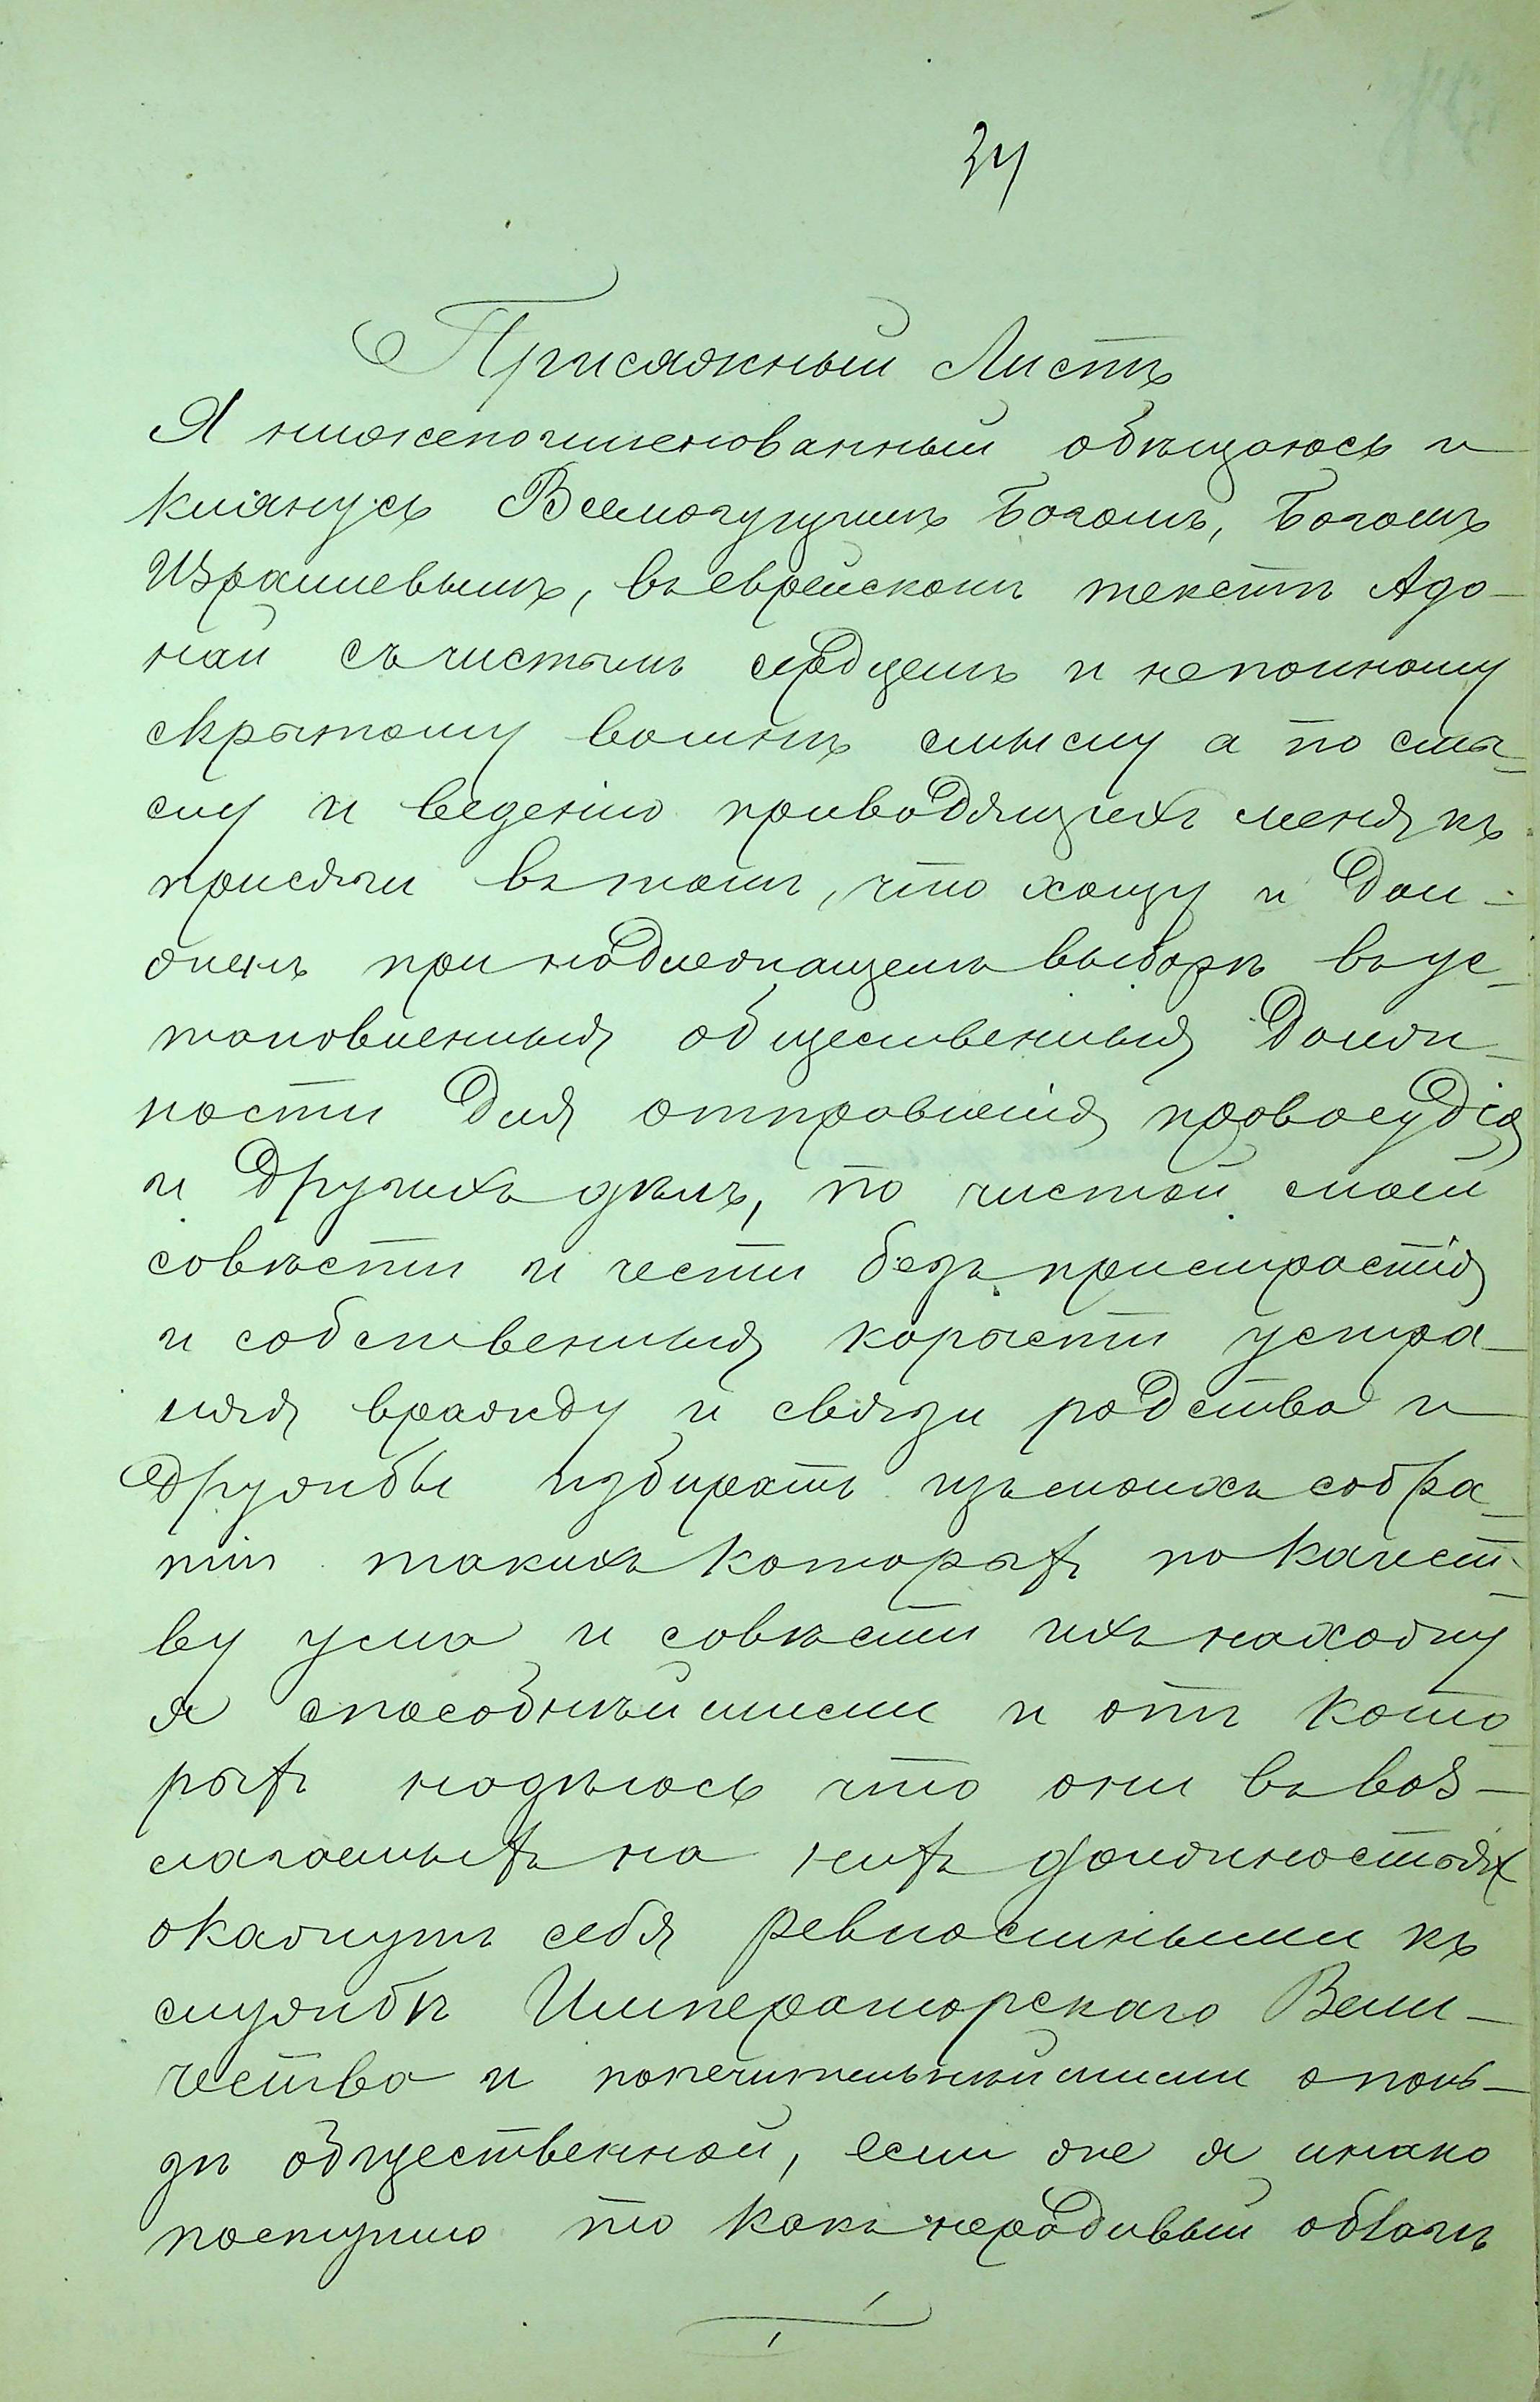 34
Присяжный Листъ
Я нижепоименованный обѣщаюсь и
клянусь Всемогущимъ Богомъ, Богомъ
Израилевымъ, въ еврейскомъ текстѣ Адо-
най съ чистымъ сердцемъ и не по иному
скрытому во мнѣ смыслу а по смы-
слу и веденію приводящихъ меня къ
присяги въ томъ, что хощу и дол-
женъ при надлежащемъ выборѣ въ ус-
тановленныя общественныя долж-
ности для отправленія правосудія
и другихъ дѣлъ, по чистой моей
совѣсти и чести безъ пристрастія
и собственныя корысти устра-
няя вражду и связи родства и
дружбы избирать изъ моихъ собра-
тій такихъ которыхъ по качест-
ву ума и совѣсти ихъ нахожу
я способнѣйшими и отъ кото-
рыхъ надѣюсь что они въ воз-
лагаемыхъ на нихъ должностях
окажутъ себя ревностными къ
службѣ Императорскаго Вели-
чества и попечительнѣйшими о поль-
зѣ общественной, если же я инако
поступлю то какъ нерадивый объ общ